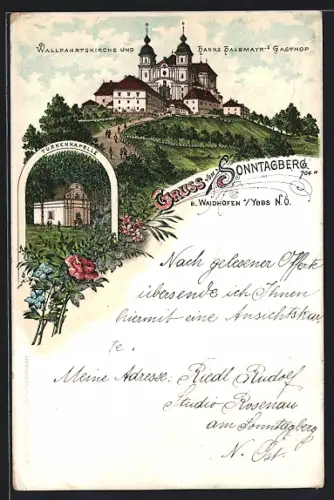 WALLFAHRTSKIRCHE UND HANNS HALBMAYR'S GASTHOF
TÜRKENKAPELLE
GRUSS VOM SONNTAGBERG
704 m
B. WAIDHOFEN a/YBBS N.Ö.
Nach gelesener Offerte
übersende ich Ihnen
hiermit eine Ansichtskar
te.
Meine Adresse: Riedl Rudolf
Studio Rosenau
am Sonntagberg
N. Öst.